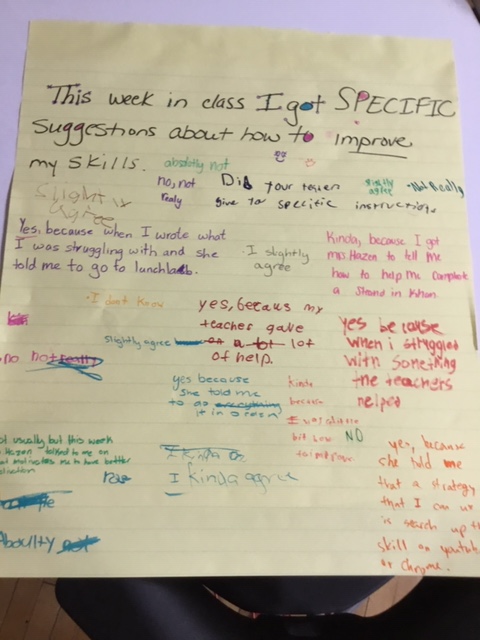 This week in class I got SPECIFIC
suggestions about how to improve
my skills.
absolutly not
no, not
realy
Did your
give
specific instructions
slightly
agree
Not Really
Slightly
agree
Yes, because when I wrote what
I was struggling with and she
told me to go to lunchlab.
I slightly
agree
Kinda, because I got
mrs. Hazen to tell me
how to help me complete
a strand in Khan
I dont know
slightly agree
yes, becaus my
teacher gave
a lot
of help.
yes because
when i struggled
with something
the teachers
helped
no not really
yes because
she told me
to do
it in
kinda
because
I was
bit low
to improve
NO
usually but this week
talked to me on
me to have better
I kinda
I kinda agree
yes, because
she told me
that a strategy
that I can us
is search up th
skill on youtub
or chrome.
not